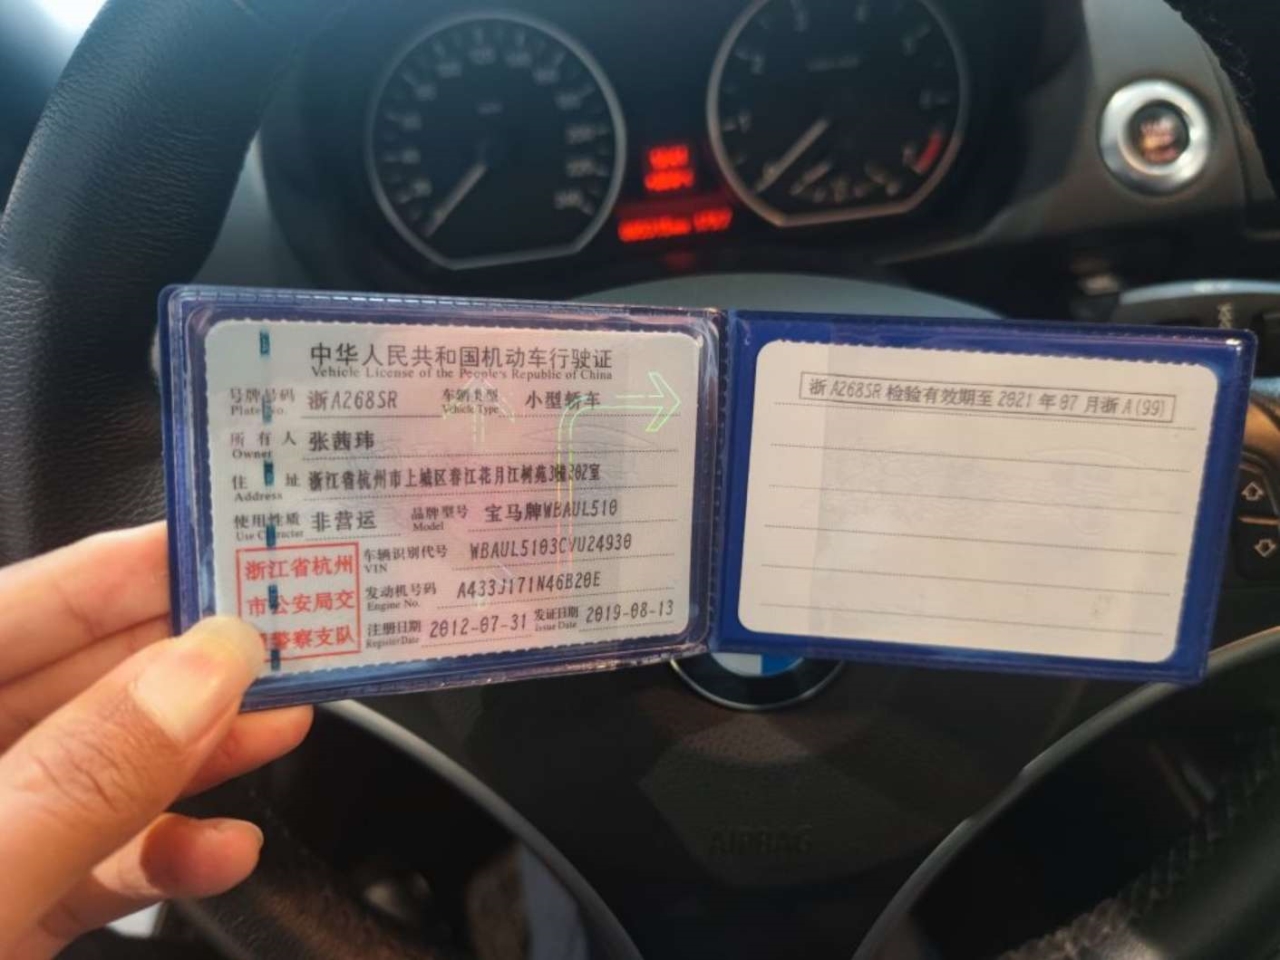 中华人民共和国机动车行驶证
Vehicle License of the People's Republic of China
号牌号码 浙A268SR 车辆类型 小型轿车
Plate No. Vehicle Type
所有人 张茜玮
Owner
住址 浙江省杭州市上城区春江花月江树苑3幢302室
Address
使用性质 非营运 品牌型号 宝马牌WBAUL510
Use Character Model
浙江省杭州
市公安局交
警察支队
车辆识别代号 WBAUL5103CVU24930
VIN
发动机号码 A433J171N46B20E
Engine No.
注册日期 2012-07-31 发证日期 2019-08-13
Register Date Issue Date
浙A268SR 检验有效期至 2021 年 07 月浙A(99)
AIRBAG